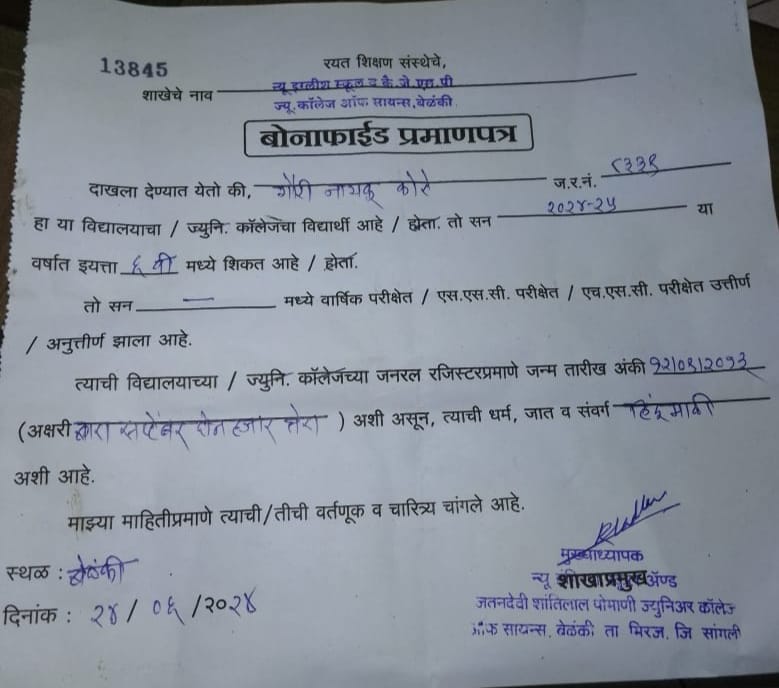 13845
रयत शिक्षण संस्थेचे,
शाखेचे नाव न्यू इंग्लीश स्कूल व के.जे.एस.पी
ज्यू. कॉलेज ऑफ सायन्स, बेळंकी.
बोनाफाईड प्रमाणपत्र
दाखला देण्यात येतो की, गौरी नायकू कोरे ज.र.नं. ८३३९
हा या विद्यालयाचा / ज्युनि. कॉलेजचा विद्यार्थी आहे / होता. तो सन २०२४-२५ या
वर्षात इयत्ता ६ वी मध्ये शिकत आहे / होता.
तो सन — मध्ये वार्षिक परीक्षेत / एस.एस.सी. परीक्षेत / एच.एस.सी. परीक्षेत उत्तीर्ण
/ अनुत्तीर्ण झाला आहे.
त्याची विद्यालयाच्या / ज्युनि. कॉलेजच्या जनरल रजिस्टरप्रमाणे जन्म तारीख अंकी १२/०९/२०१३
(अक्षरी बारा सप्टेंबर दोन हजार तेरा ) अशी असून, त्याची धर्म, जात व संवर्ग हिंदू माळी
अशी आहे.
माझ्या माहितीप्रमाणे त्याची/तीची वर्तणूक व चारित्र्य चांगले आहे.
स्थळ : बेळंकी
मुख्याध्यापक
दिनांक : २४ / ०६ /२०२४
न्यू शाखाप्रमुख ॲण्ड
जतनदेवी शांतिलाल पोमाणी ज्युनिअर कॉलेज
ऑफ सायन्स, बेळंकी ता मिरज, जि सांगली